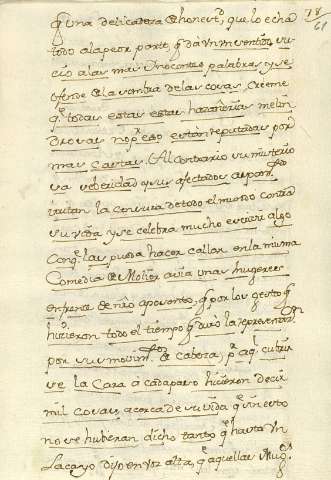 78
61
q una delicadeza de honestd, que lo echa
todo a la peor parte, q da Un sentido, su
cio a las mas Inocentes palabras y se
ofende de la sombra de las cosas, Creeme
qe todas estas estas hazañerias melin
drosas no pr eso están reputadas por
mas Castas. Al contrario su misterio
sa seberidad y sus afectados aspam.tos
irritan la censura de todo el mundo contra
su vida y se celebra mucho descubrir algo
Con qe las pueda hacer callar en la misma
Comedia de Molier avia unas Mugeres
enfrente de nro aposento, q por los gestos q
hicieron todo el tiempo q duró la representaon
por sus movim.tos de cabeza, pr aql cubrir
se la Cara à cada paso hicieron decir
mil cosas, acerca de su vida qe sin esto
no se hubieran dicho tanto qe hasta Un
Lacayo dijo en voz alta, qe aquellas Mug.s